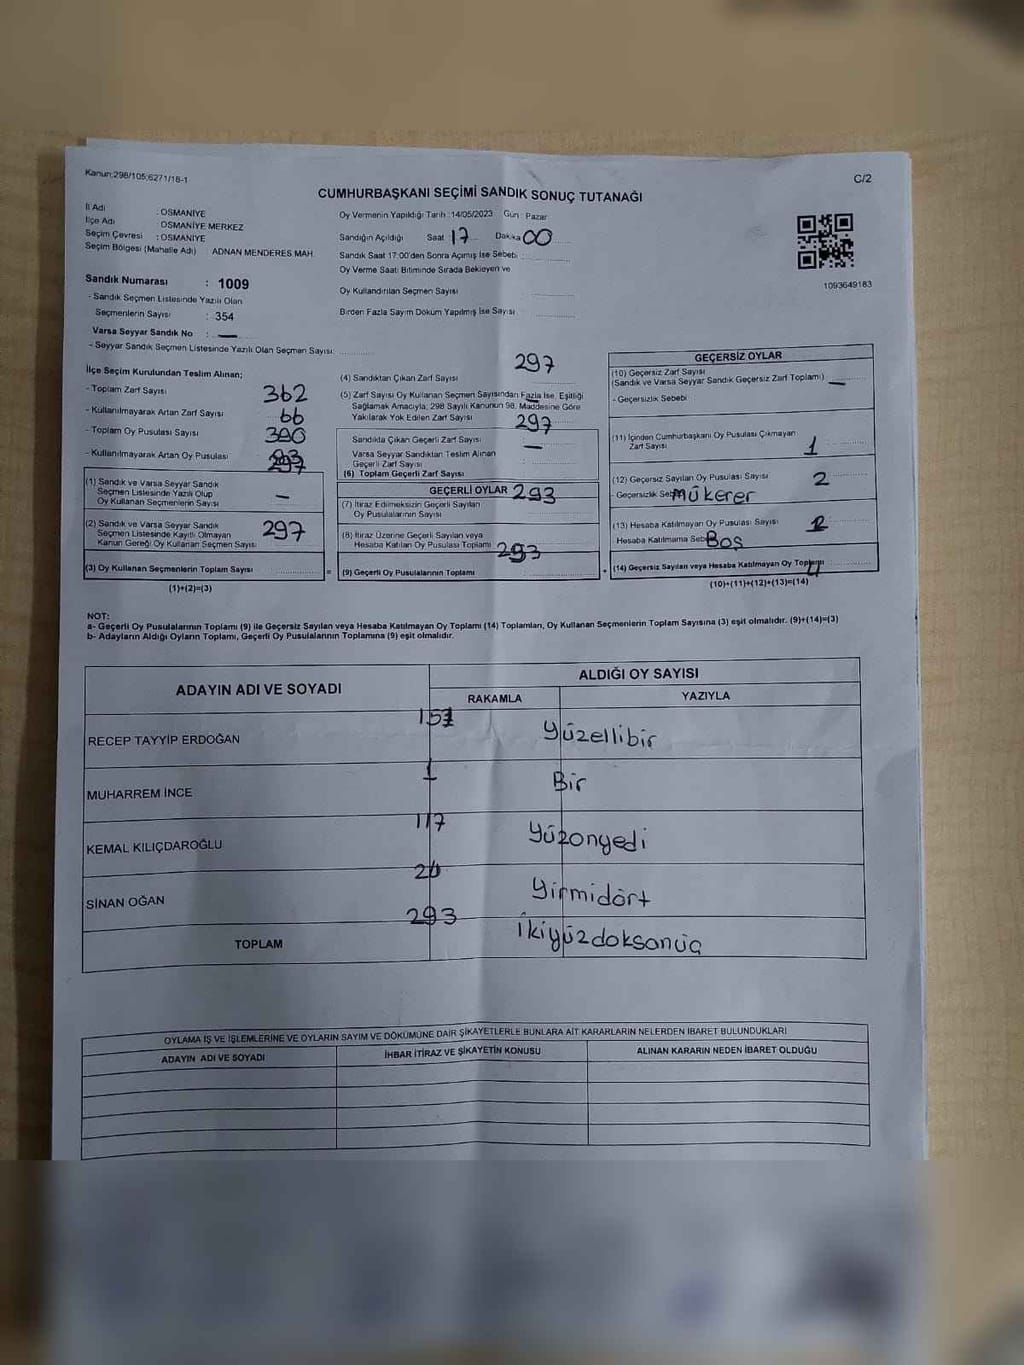 Kanun:298/105;6271/18-1
C/2
CUMHURBAŞKANI SEÇİMİ SANDIK SONUÇ TUTANAĞI
İl Adı : OSMANİYE
İlçe Adı : OSMANİYE MERKEZ
Seçim Çevresi : OSMANİYE
Seçim Bölgesi (Mahalle Adı) : ADNAN MENDERES MAH
Sandık Numarası : 1009
- Sandık Seçmen Listesinde Yazılı Olan
Seçmenlerin Sayısı : 354
Varsa Seyyar Sandık No : —
- Seyyar Sandık Seçmen Listesinde Yazılı Olan Seçmen Sayısı:
Oy Vermenin Yapıldığı Tarih : 14/05/2023 Gün : Pazar
Sandığın Açıldığı Saat 17 Dakika 00
Sandık Saat 17:00'den Sonra Açımış İse Sebebi
Oy Verme Saati Bitiminde Sırada Bekleyen ve
Oy Kullandırılan Seçmen Sayısı
Birden Fazla Sayım Döküm Yapılmış İse Sayısı
1093649183
İlçe Seçim Kurulundan Teslim Alınan;
- Toplam Zarf Sayısı 362
- Kullanılmayarak Artan Zarf Sayısı 66
- Toplam Oy Pusulası Sayısı
- Kullanılmayarak Artan Oy Pusulası
(1) Sandık ve Varsa Seyyar Sandık
Seçmen Listesinde Yazılı Olup
Oy Kullanan Seçmenlerin Sayısı —
(2) Sandık ve Varsa Seyyar Sandık
Seçmen Listesinde Kayıtlı Olmayan
Kanun Gereği Oy Kullanan Seçmen Sayısı 297
(3) Oy Kullanan Seçmenlerin Toplam Sayısı
(1)+(2)=(3)
297
(4) Sandıktan Çıkan Zarf Sayısı
(5) Zarf Sayısı Oy Kullanan Seçmen Sayısından Fazla İse, Eşitliği
Sağlamak Amacıyla; 298 Sayılı Kanunun 98. Maddesine Göre
Yakılarak Yok Edilen Zarf Sayısı —
297
Sandıkta Çıkan Geçerli Zarf Sayısı
Varsa Seyyar Sandıktan Teslim Alınan —
Geçerli Zarf Sayısı
(6) Toplam Geçerli Zarf Sayısı
GEÇERLİ OYLAR 293
(7) İtiraz Edilmeksizin Geçerli Sayılan
Oy Pusulalarının Sayısı
(8) İtiraz Üzerine Geçerli Sayılan veya
Hesaba Katılan Oy Pusulası Toplamı 293
(9) Geçerli Oy Pusulalarının Toplamı
GEÇERSİZ OYLAR
(10) Geçersiz Zarf Sayısı
(Sandık ve Varsa Seyyar Sandık Geçersiz Zarf Toplamı) —
- Geçersizlik Sebebi
(11) İçinden Cumhurbaşkanı Oy Pusulası Çıkmayan
Zarf Sayısı 1
(12) Geçersiz Sayılan Oy Pusulası Sayısı 2
- Geçersizlik Sebebi mükerer
(13) Hesaba Katılmayan Oy Pusulası Sayısı
Hesaba Katılmama Sebebi Boş
(14) Geçersiz Sayılan veya Hesaba Katılmayan Oy Toplamı 4
(10)+(11)+(12)+(13)=(14)
NOT:
a- Geçerli Oy Pusulalarının Toplamı (9) ile Geçersiz Sayılan veya Hesaba Katılmayan Oy Toplamı (14) Toplamları, Oy Kullanan Seçmenlerin Toplam Sayısına (3) eşit olmalıdır. (9)+(14)=(3)
b- Adayların Aldığı Oyların Toplamı, Geçerli Oy Pusulalarının Toplamına (9) eşit olmalıdır.
ADAYIN ADI VE SOYADI
ALDIĞI OY SAYISI
RAKAMLA YAZIYLA
RECEP TAYYİP ERDOĞAN 151 yüzellibir
MUHARREM İNCE 1 Bir
KEMAL KILIÇDAROĞLU 117 yüzonyedi
SİNAN OĞAN 24 yirmidört
TOPLAM 293 ikiyüzdoksanüç
OYLAMA İŞ VE İŞLEMLERİNE VE OYLARIN SAYIM VE DÖKÜMÜNE DAİR ŞİKAYETLERLE BUNLARA AİT KARARLARIN NELERDEN İBARET BULUNDUKLARI
ADAYIN ADI VE SOYADI İHBAR İTİRAZ VE ŞİKAYETİN KONUSU ALINAN KARARIN NEDEN İBARET OLDUĞU